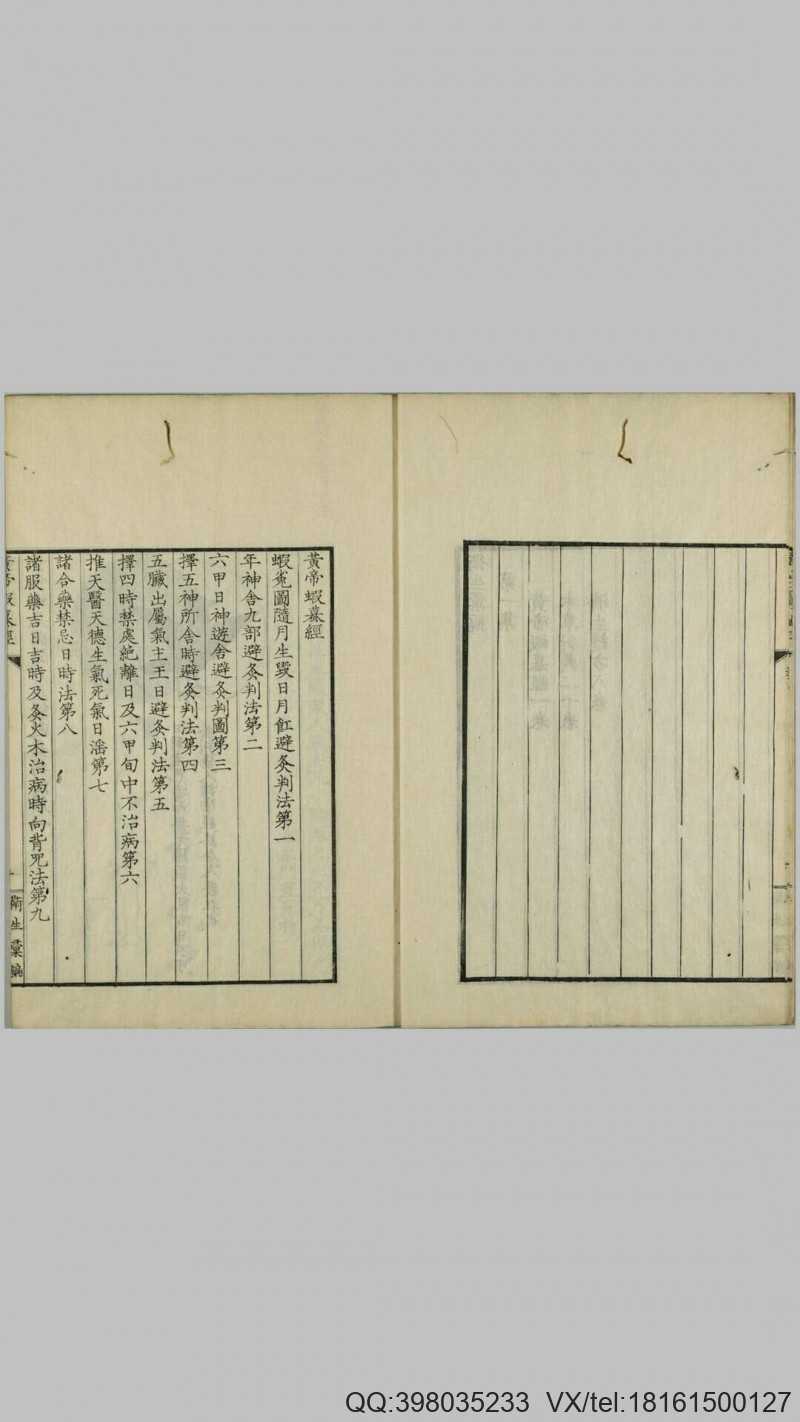 黃帝蝦蟇經
蝦兎圖隨月生毀日月𧈫避灸判法第一
年神舍九部避灸判法第二
六甲日神遊舍避灸判圖第三
擇五神所舍時避灸判法第四
五臟出屬氣主王日避灸判法第五
擇四時禁處絶離日及六甲旬中不治病第六
推天醫天德生氣死氣日𣸣第七
諸合藥禁忌日時法第八
諸服藥吉日吉時及灸火木治病時向背咒法第九
黃帝蝦蟇經
衛生彙編
QQ:398035233 VX/tel:18161500127